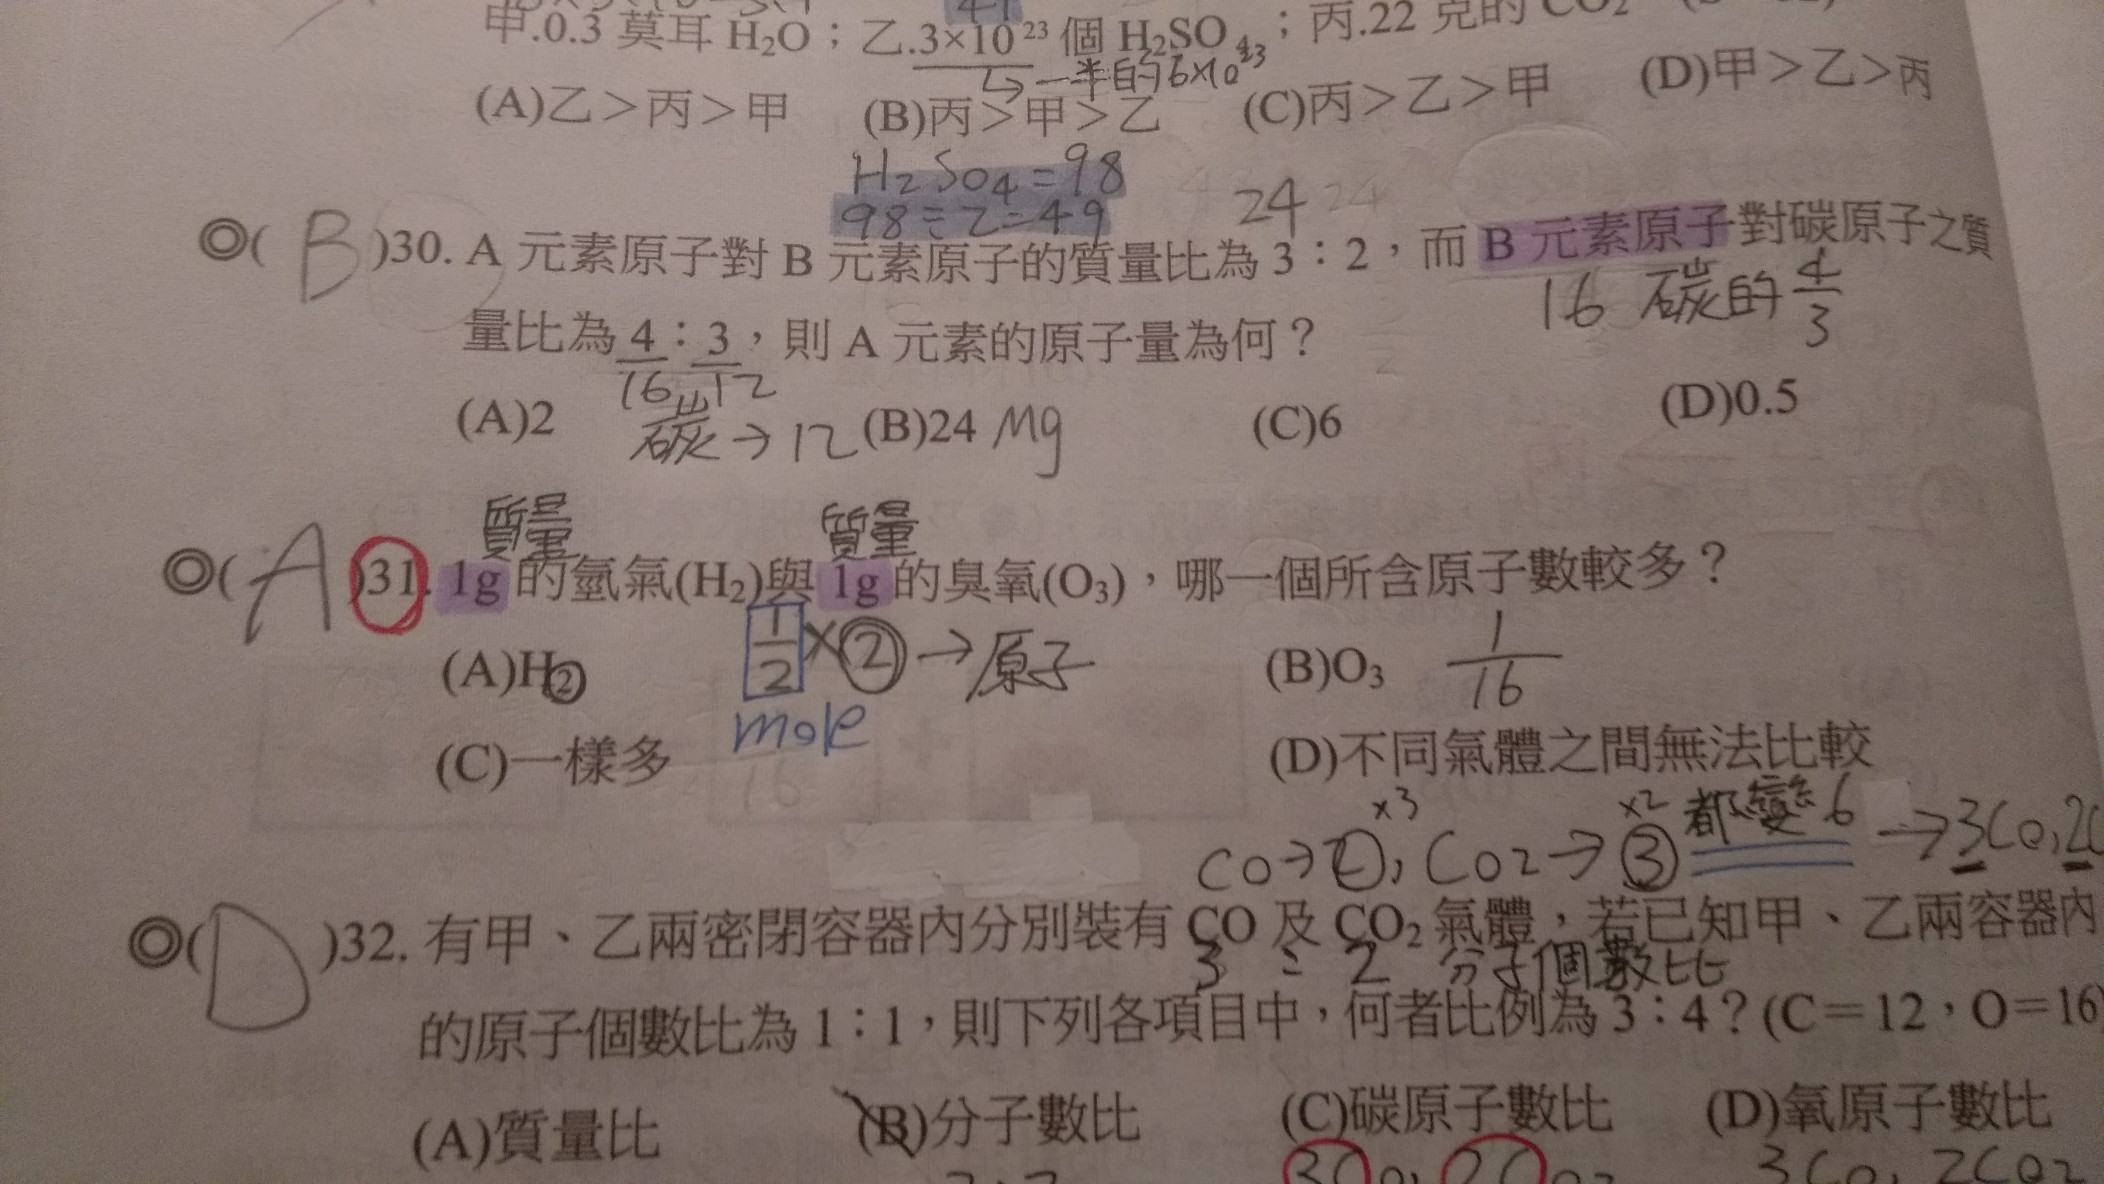 甲.0.3 莫耳 H₂O；乙.3×10²³ 個 H₂SO₄；丙.22 克的 CO₂
↳一半的6×10²³
(A)乙＞丙＞甲 (B)丙＞甲＞乙 (C)丙＞乙＞甲 (D)甲＞乙＞丙
H₂SO₄=98
98÷2=49
24
◎( B )30. A 元素原子對 B 元素原子的質量比為 3：2，而 B 元素原子對碳原子之質
16 碳的 4/3
量比為 4：3，則 A 元素的原子量為何？
16 比 12
(A)2 碳→12 (B)24 Mg (C)6 (D)0.5
質量 質量
◎( A )31. 1g 的氫氣(H₂)與 1g 的臭氧(O₃)，哪一個所含原子數較多？
(A)H₂ 1/2×②→原子 (B)O₃ 1/16
mole
(C)一樣多 (D)不同氣體之間無法比較
×3 ×2 都變6
CO→②, CO₂→③ →3CO,2C
◎( D )32. 有甲、乙兩密閉容器內分別裝有 CO 及 CO₂ 氣體，若已知甲、乙兩容器內
3：2 分子個數比
的原子個數比為 1：1，則下列各項目中，何者比例為 3：4？(C＝12，O＝16)
(A)質量比 (B)分子數比 (C)碳原子數比 (D)氧原子數比
3CO, 2CO₂ 3CO, 2CO₂